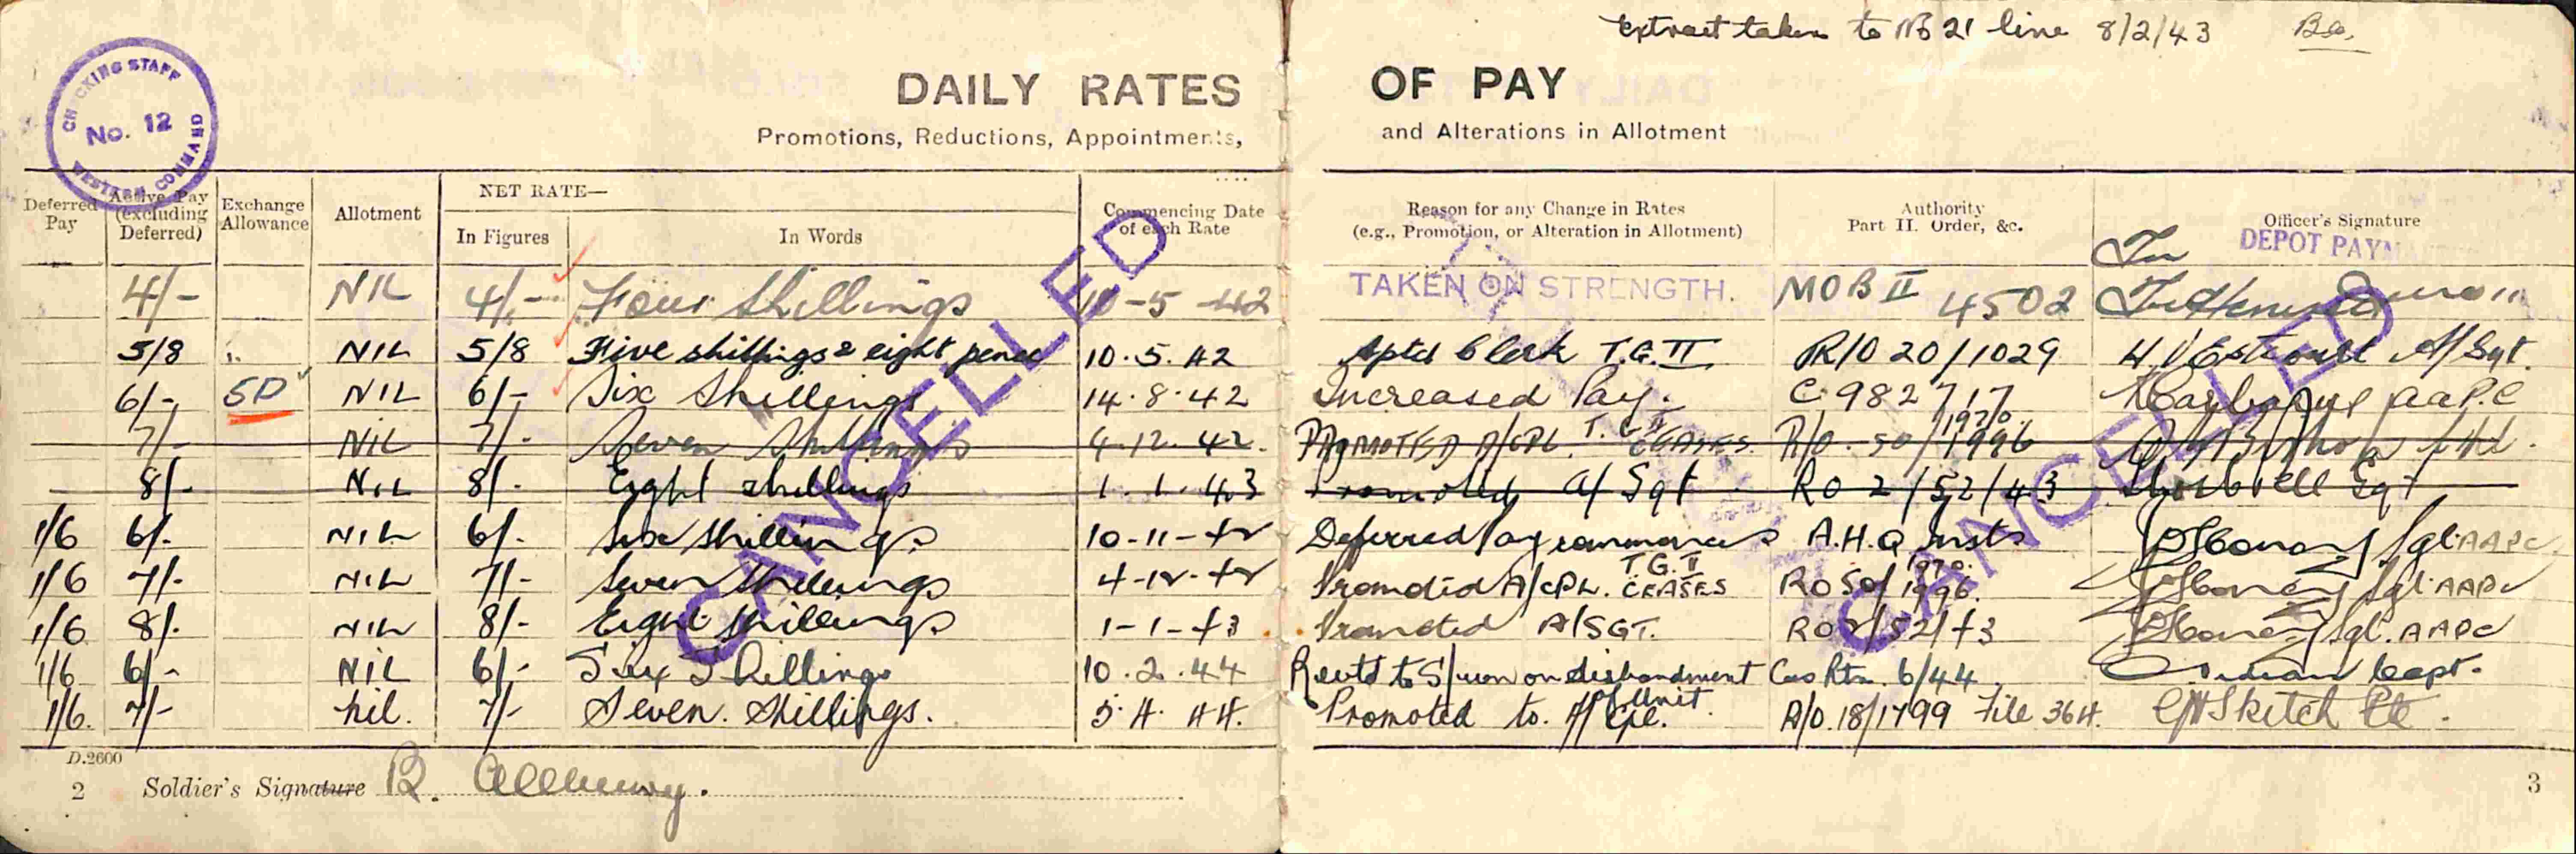 Extract taken to 21 line 8/2/43
CHECKING STAFF
No. 12
WESTERN COMMAND
DAILY RATES OF PAY
Promotions, Reductions, Appointments, and Alterations in Allotment
Deferred Pay
Active Pay (excluding Deferred)
Exchange Allowance
Allotment
NET RATE—
In Figures
In Words
Commencing Date of each Rate
Reason for any Change in Rates (e.g., Promotion, or Alteration in Allotment)
Authority Part II. Order, &c.
Officer's Signature
DEPOT
4/- NIL 4/- Four Shillings 10-5-42 TAKEN ON STRENGTH. MOB II 4502
5/8 NIL 5/8 Five shillings & eight pence 10.5.42 Aptd Clerk T.G.II R/O 20/1029 A/Sgt.
6/- 5D NIL 6/- Six Shillings 14.8.42 Increased Pay. C 982717 AAPC
7/- NIL 7/- Seven Shillings 4.12.42. PROMOTED A/CPL. T.G.II CEASES. R/O 50/1970/1996
8/- NIL 8/- Eight shillings 1.1.43 Promoted A/Sgt RO 2/52/43 Sgt
1/6 6/- NIL 6/- Six Shillings 10-11-42 Deferred Pay commences A.H.Q Insts Sgt. AAPC
1/6 7/- NIL 7/- Seven Shillings 4-12-42 Promoted A/CPL. T.G.II CEASES RO 50/1970/1996. Sgt. AAPC
1/6 8/- NIL 8/- Eight Shillings 1-1-43 Promoted A/SGT. RO 2/52/43 Sgt. AAPC
1/6 6/- NIL 6/- Six Shillings 10.2.44 on disbandment of Unit Cas Rtn. 6/44 Capt.
1/6. 7/- Nil. 7/- Seven. Shillings. 5.4.44. Promoted to. A/Cpl. A/O.18/1799 File 364. Sketch Lt.
CANCELLED
CANCELLED
D.2600
2 Soldier's Signature B.
3